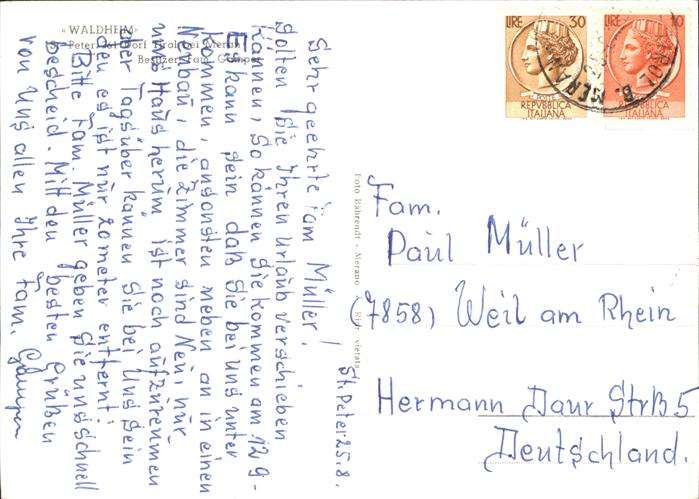 „WALDHEIM"
St. Peter 25.8.
Sehr geehrte Fam Müller!
Sollten Sie Ihren Urlaub verschieben
können, so können Sie kommen am 12 9-
Es kann sein daß Sie bei Uns unter
kommen, ansonsten neben an in einen
Neubau, die Zimmer sind Neu, nur
ums Haus herum ist noch aufzureumen
aber Tagsüber kannen Sie bei Uns sein
den es ist nur 20 meter entfernt:
Bitte Fam. Müller geben Sie uns schnell
bescheid. Mitt den besten Grüßen
von Uns allen Ihre Fam. Gamper
Foto Bährendt - Merano
Rip. vietata
LIRE 30
REPVBBLICA
ITALIANA
LIRE
REPVBBLICA
ITALIANA
Fam.
Paul Müller
(7858) Weil am Rhein
Hermann Daur Strß 5
Deutschland.